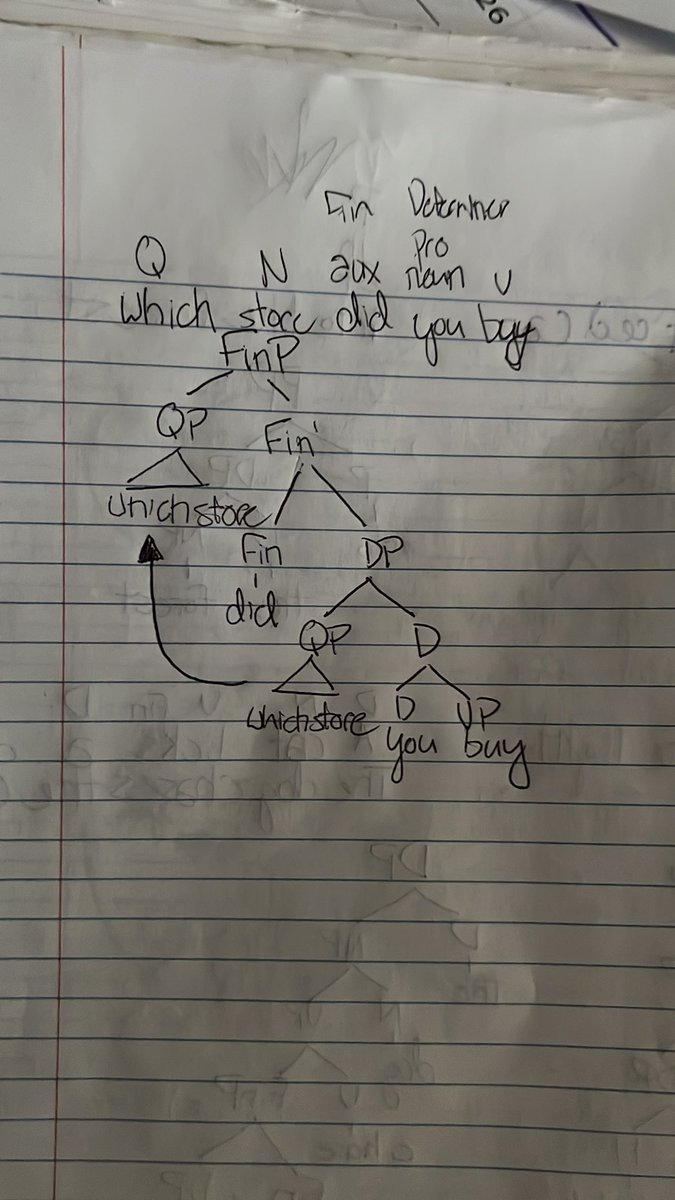 26
Fin Determiner
Pro
Q N aux noun v
Which store did you buy
FinP
QP Fin'
Which store
Fin DP
did
QP D
Which store D VP
you buy
DP